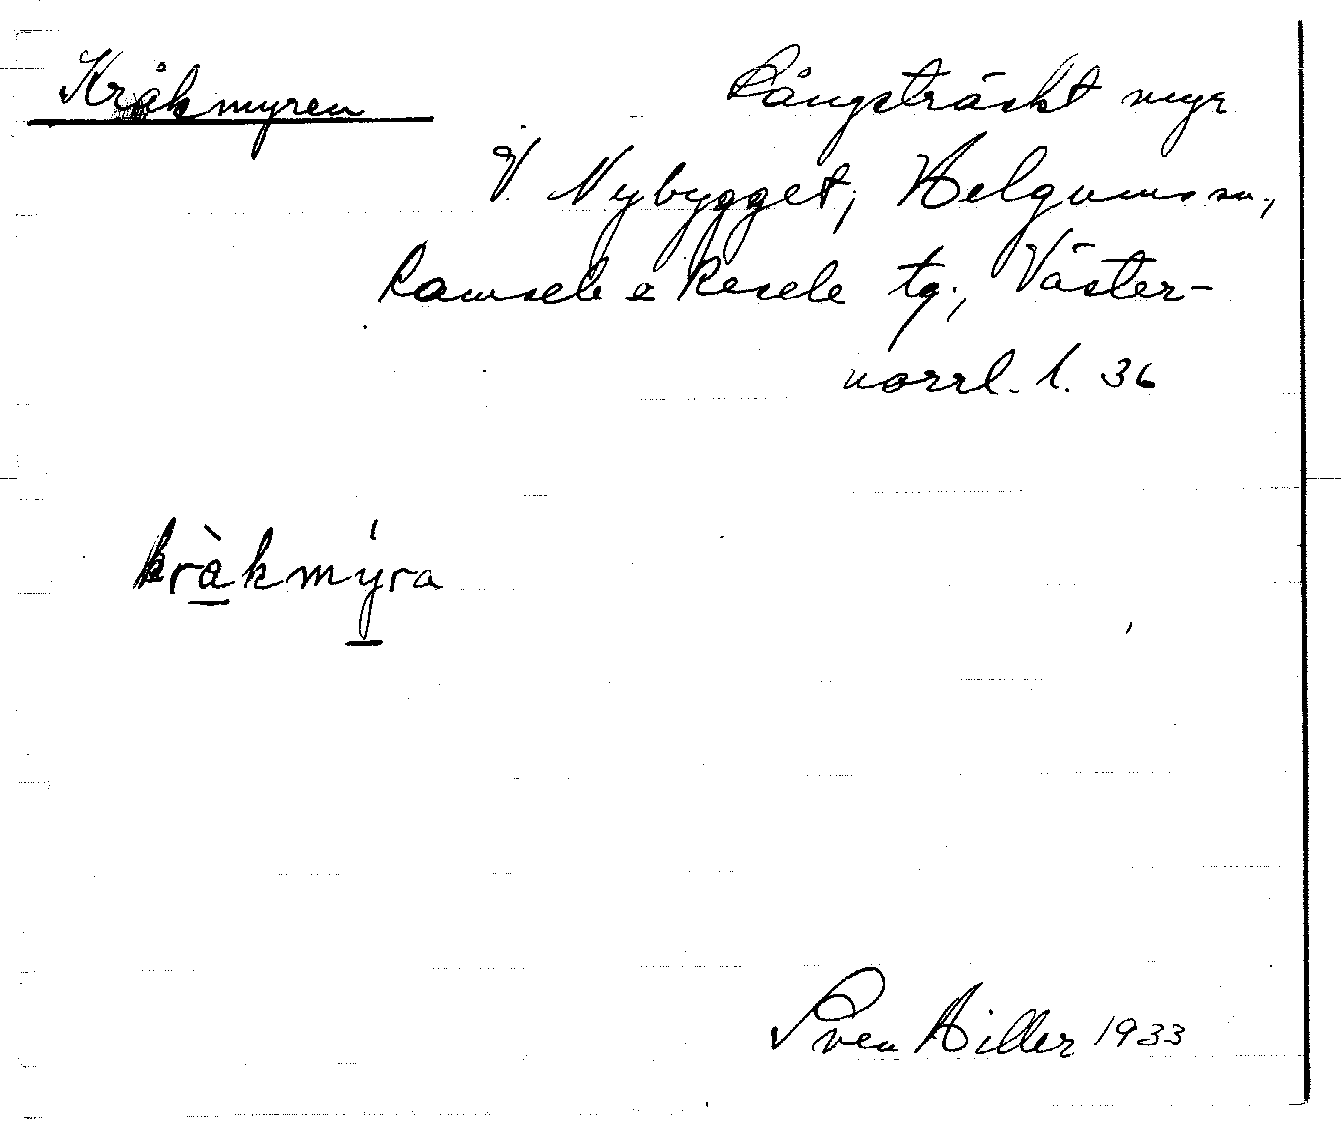 Kråkmyren
Långsträckt myr
V. Nybygget, Helgums sn.,
Ramsele o Resele tg., Väster-
norrl. l. 36
kràkmýra
Sven Hiller 1933